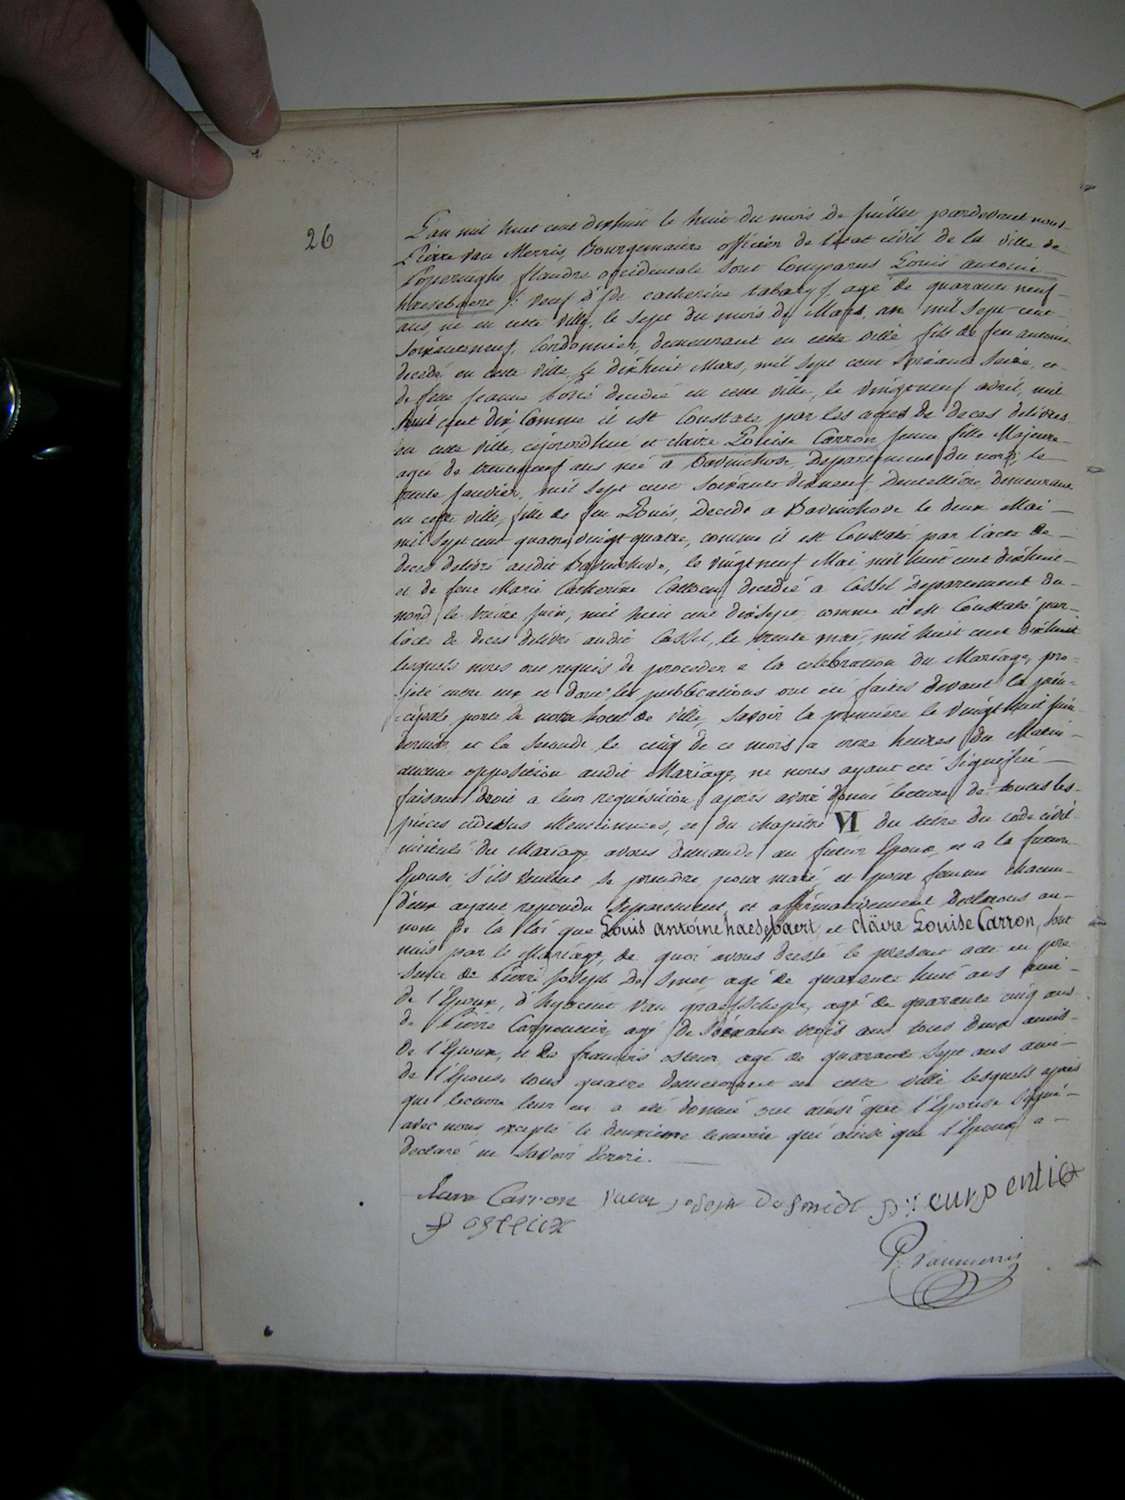 26
L'an mil huit cent dixhuit le huit du mois de Juillet pardevant nous
Pierre Van Merris, Bourgemaitre officier de l'état civil de la ville de
Poperinghe flandre occidentale sont Comparus Louis antoine
haesebaert veuf de catherine tabary agé de quarante neuf
ans, né en cette ville, le sept du mois de Mars, an mil sept cent
soixanteneuf, Cordonnier, demeurant en cette ville fils de feu antoine
decedé en cette ville le dixhuit Mars, mil sept cent et
de feue jeanne decedée en cette ville, le vingtneuf avril, mil
huit cent dix, Comme il est Constaté par les actes de deces delivrés
en cette ville, cejourdhui et claire Louise Carron jeune fille Majeure
agée de trenteneuf ans née à Bavinchove, Departement du nord, le
trente janvier, mil sept cent soixante dixneuf Dentellière, demeurant
en cette ville, fille de feu Louis, Decedé a Bavinchove le deux Mai
mil sept cent quatre vingt quatre, comme il est Constaté par l'acte de
deces delivré audit Bavinchove, le vingtneuf Mai mil huit cent dixhuit
et de feue Marie Catherine decedée à Cassel Departement du
nord le treize juin, mil huit cent dixsept, comme il est Constaté par
l'acte de deces delivré audit Cassel, le trente mai, mil huit cent dixhuit
lesquels nous ont requis de proceder à la celebration du Mariage, pro-
jeté entre eux et dont les publications ont été faites devant la prin-
cipale porte de notre hotel de ville, Savoir la première le vingt huit juin
dernier, et la seconde le cinq de ce mois a onze heures du Matin
aucune opposition audit Mariage, ne nous ayant été Signifiée
faisant droit a leur requisition, après avoir donné lecture de toutes les
pièces cidessus Mentionnées, et du chapitre VI du titre du code civil
intitulé du Mariage, avons demandé au futur Epoux, et a la future
Epouse s'ils veulent se prendre pour mari et pour femme chacun
d'eux ayant repondu Separement et affirmativement Declarons au
nom de la Loi que Louis antoine haesebaert, et claire Louise Carron, sont
unis par le Mariage, de quoi avons dressé le present acte en pre-
sence de Pierre Joseph De Smet, agé de quarante huit ans ami
de l'Epoux, d'hyacint Van agé de quarante cinq ans
de Pierre Carpentier, agé de Soixante trois ans tous deux amis
de l'Epoux, et de francois osteux agé de quarante Sept ans ami
de l'Epouse tous quatre demeurant en cette ville lesquels après
que lecture leur en a été donnée ont ainsi que l'Epouse Signé
avec nous excepté le deuxieme temoin qui ainsi que l'Epoux a
declaré ne savoir Ecrire.
Carron joseph De Smidt carpentie
f osteux
P. Vanmerris